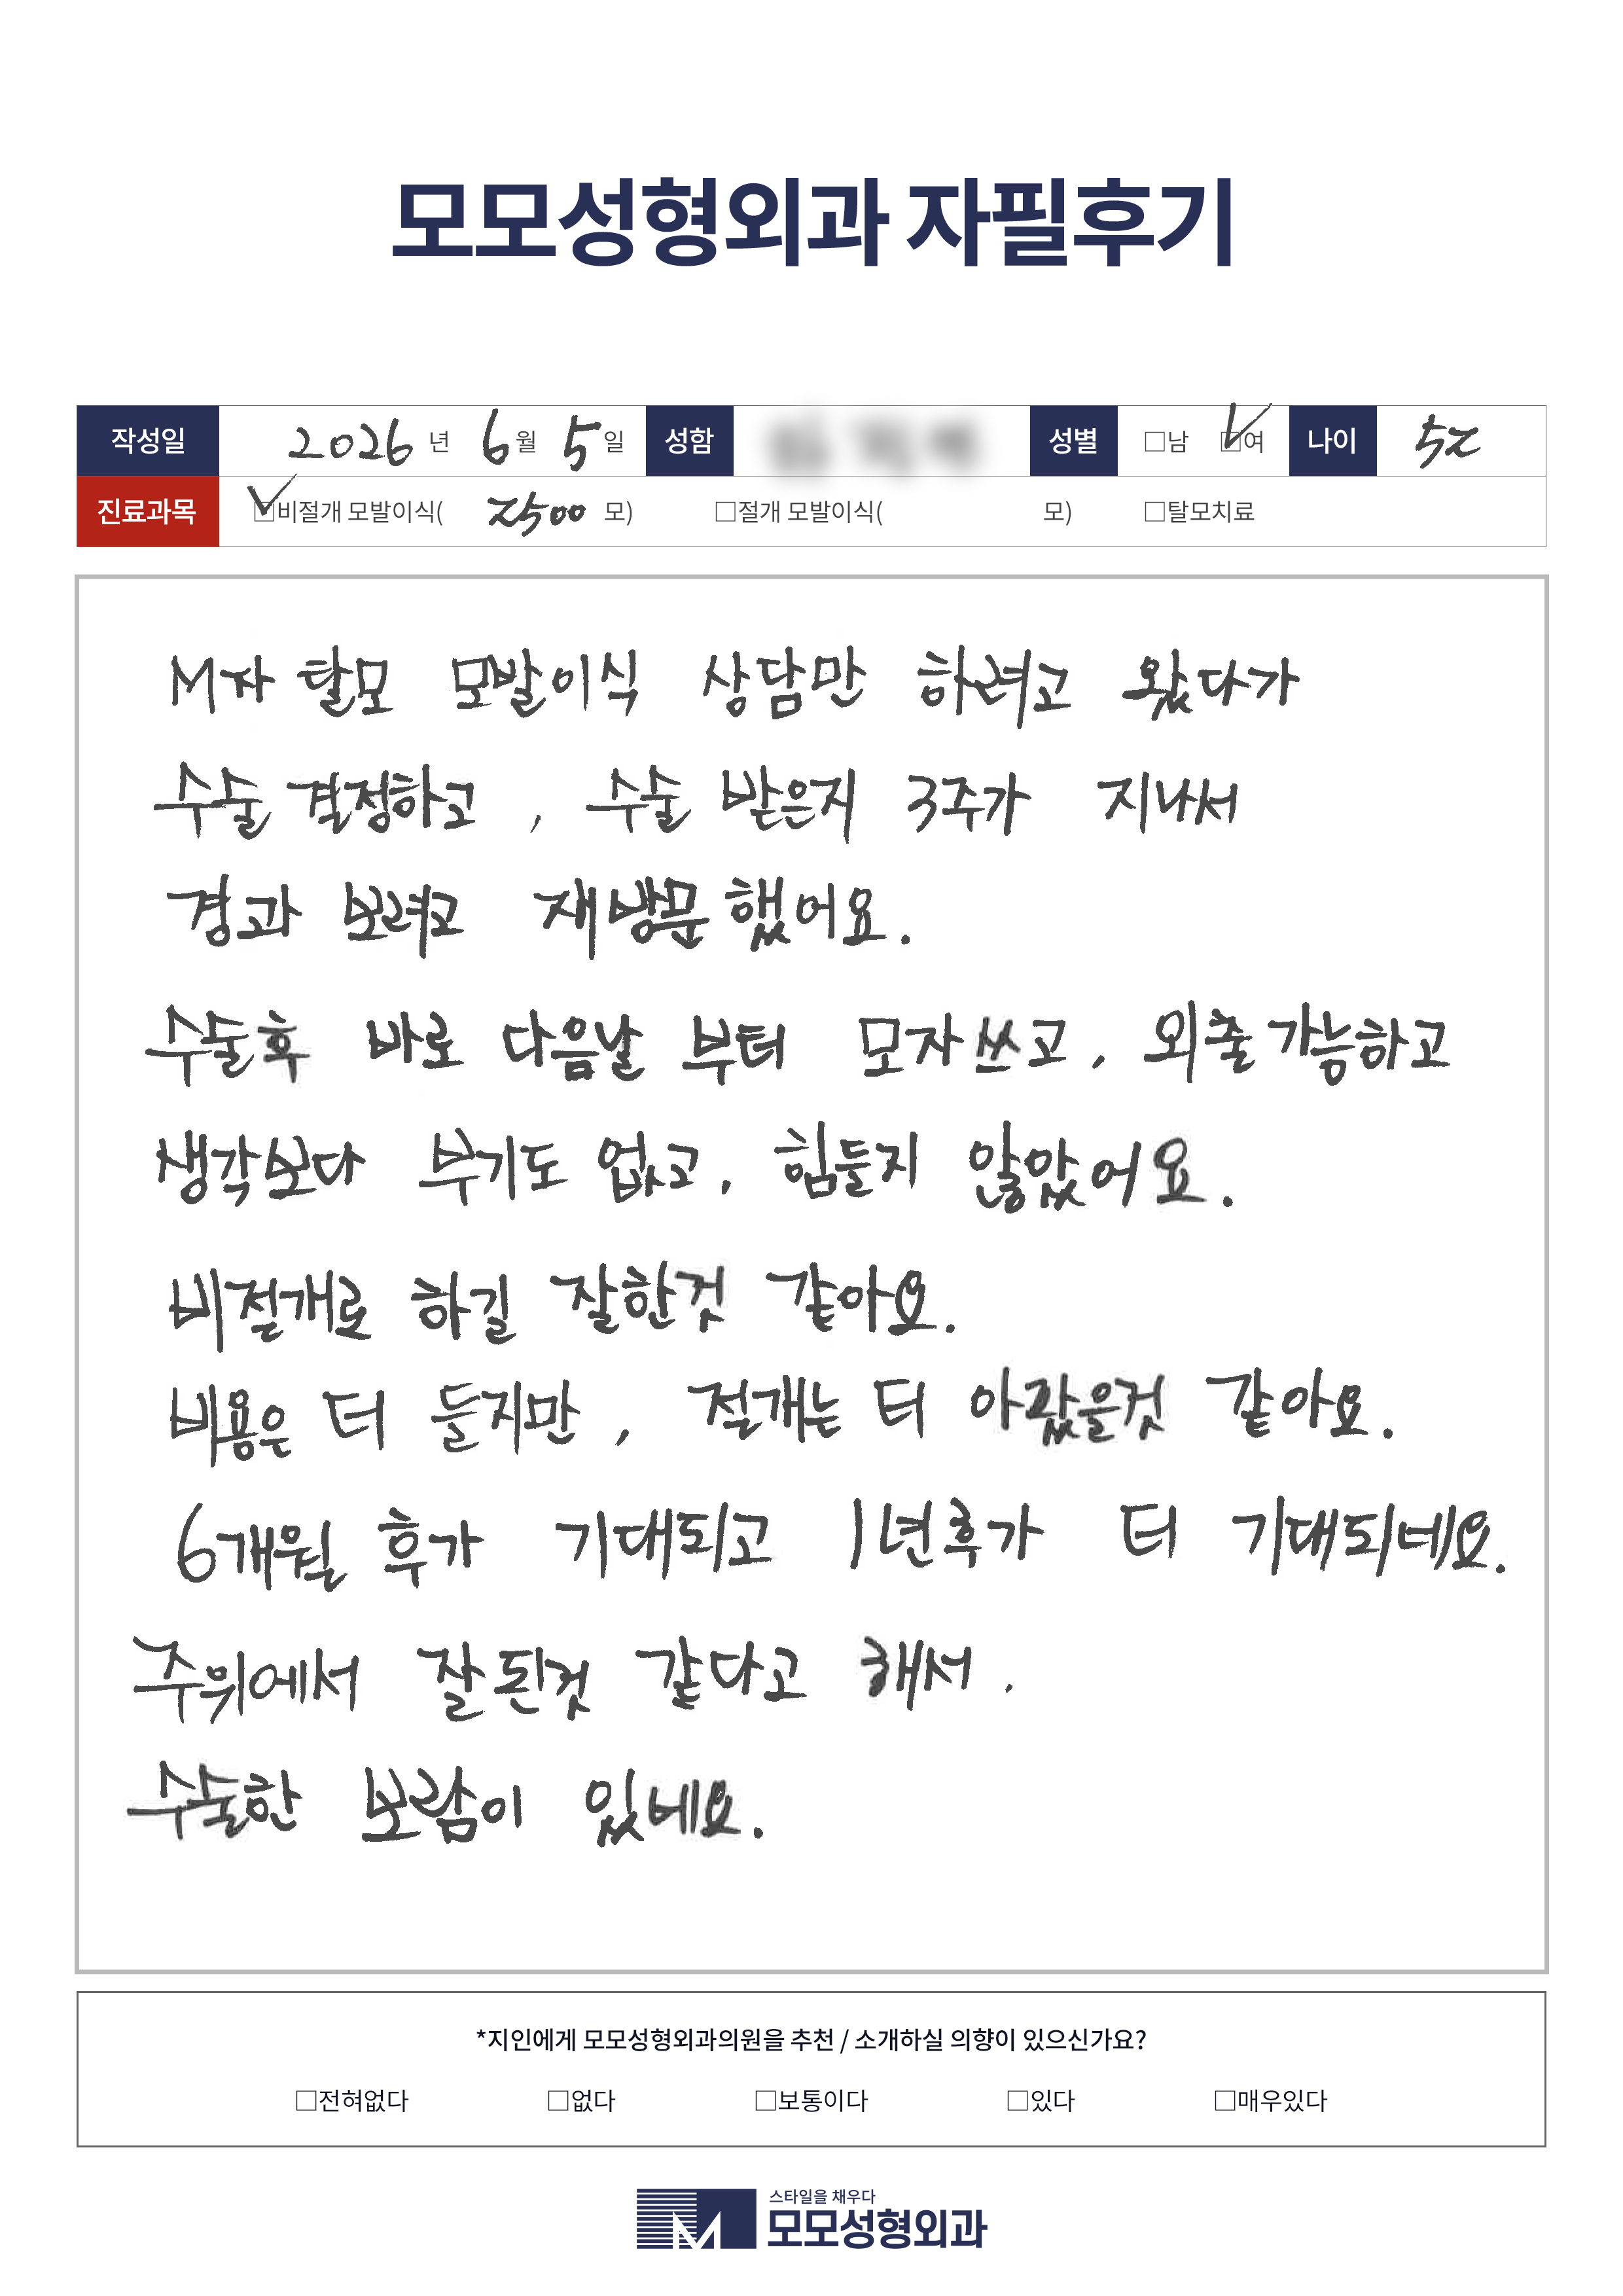 모모성형외과 자필후기
작성일 2026 년 6 월 5 일 성함 성별 □남 □여 나이 52
진료과목 □비절개 모발이식( 2500 모) □절개 모발이식( 모) □탈모치료
M자 탈모 모발이식 상담만 하려고 왔다가
수술 결정하고, 수술 받은지 3주가 지나서
경과 보려고 재방문 했어요.
수술후 바로 다음날 부터 모자쓰고, 외출 가능하고
생각보다 붓기도 없고, 힘들지 않았어요.
비절개로 하길 잘한것 같아요.
비용은 더 들지만, 절개는 더 아팠을것 같아요.
6개월 후가 기대되고 1년후가 더 기대되네요.
주위에서 잘된것 같다고 해서.
수술한 보람이 있네요.
*지인에게 모모성형외과의원을 추천 / 소개하실 의향이 있으신가요?
□전혀없다 □없다 □보통이다 □있다 □매우있다
스타일을 채우다
모모성형외과